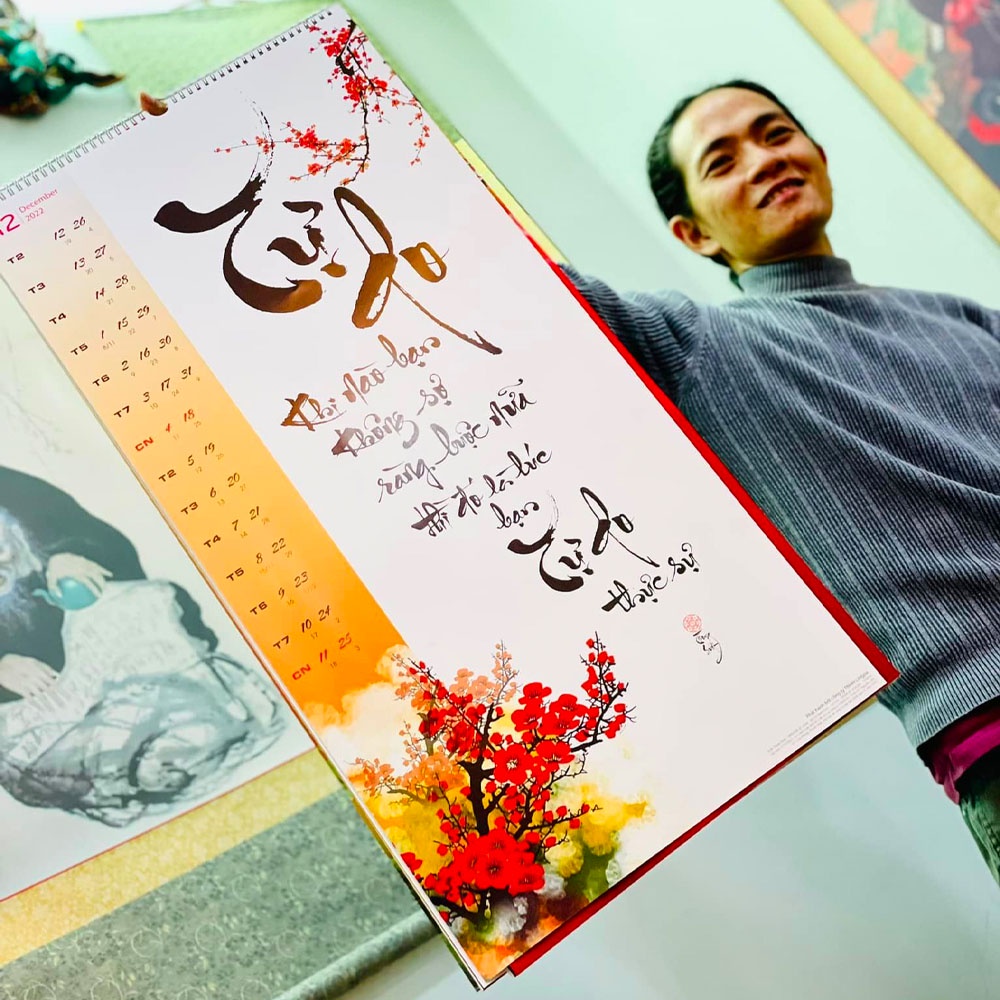 12 December
2022
T2 12 26
T3 13 27
T4 14 28
T5 1 15 29
T6 2 16 30
T7 3 17 31
CN 4 18
T2 5 19
T3 6 20
T4 7 21
T5 8 22
T6 9 23
T7 10 24
CN 11 25
Tự do
Khi nào bạn
không sợ
ràng buộc nữa
thì đó là lúc
bạn
Tự do
thực sự